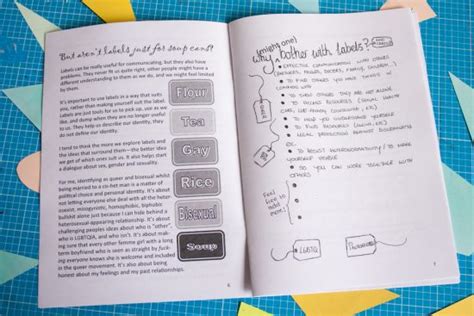 But aren't labels just for soup cans?
Labels can be really useful for communicating, but they also have
problems. They never fit us quite right, other people might have a
different understanding to them as we do, and we might feel limited
by them.
It's important to use labels in a way that suits
you, rather than making yourself suit the label.
Labels are just tools for us to pick up, use as we
like, and dump when they are no longer useful
to us. They help us describe our identity, they
do not define our identity.
I tend to think the more we explore labels and
the ideas that surround them the better idea
we get of which ones suit us. It also helps start
a dialogue about sex, gender and sexuality.
For me, identifying as queer and bisexual whilst
being married to a cis-het man is a matter of
political choice and personal identity. It's about
not letting everyone else deal with all the heter
osexist, misogynistic, homophobic, biphobic
bullshit alone just because I can hide behind a
heterosexual-appearing relationship. It's about
challenging peoples ideas about who is "other",
who is LGBTQIA, and who isn't. It's about mak-
ing sure that every other femme girl with a long
term boyfriend who is seen as straight by fuck-
ing everyone knows she is welcome and included
in the queer movement. It's also about being
honest about my feelings and my past relationships.
Flour
Tea
Gay
Rice
Bisexual
Soup
6
why might one? bother with labels?
Effective communication with other
(partners, friends, doctors, family, children...)
To find others you have things in
common with
To show others they are not alone
To access resources (shelters, grants,
etc)
To help you understand yourself
To find medical care
Legal protection against discrimination
To resist heteronormativity / to make
yourself visible
So you can work together with
others
Feel
free to
add
more!
LGBTQ
7